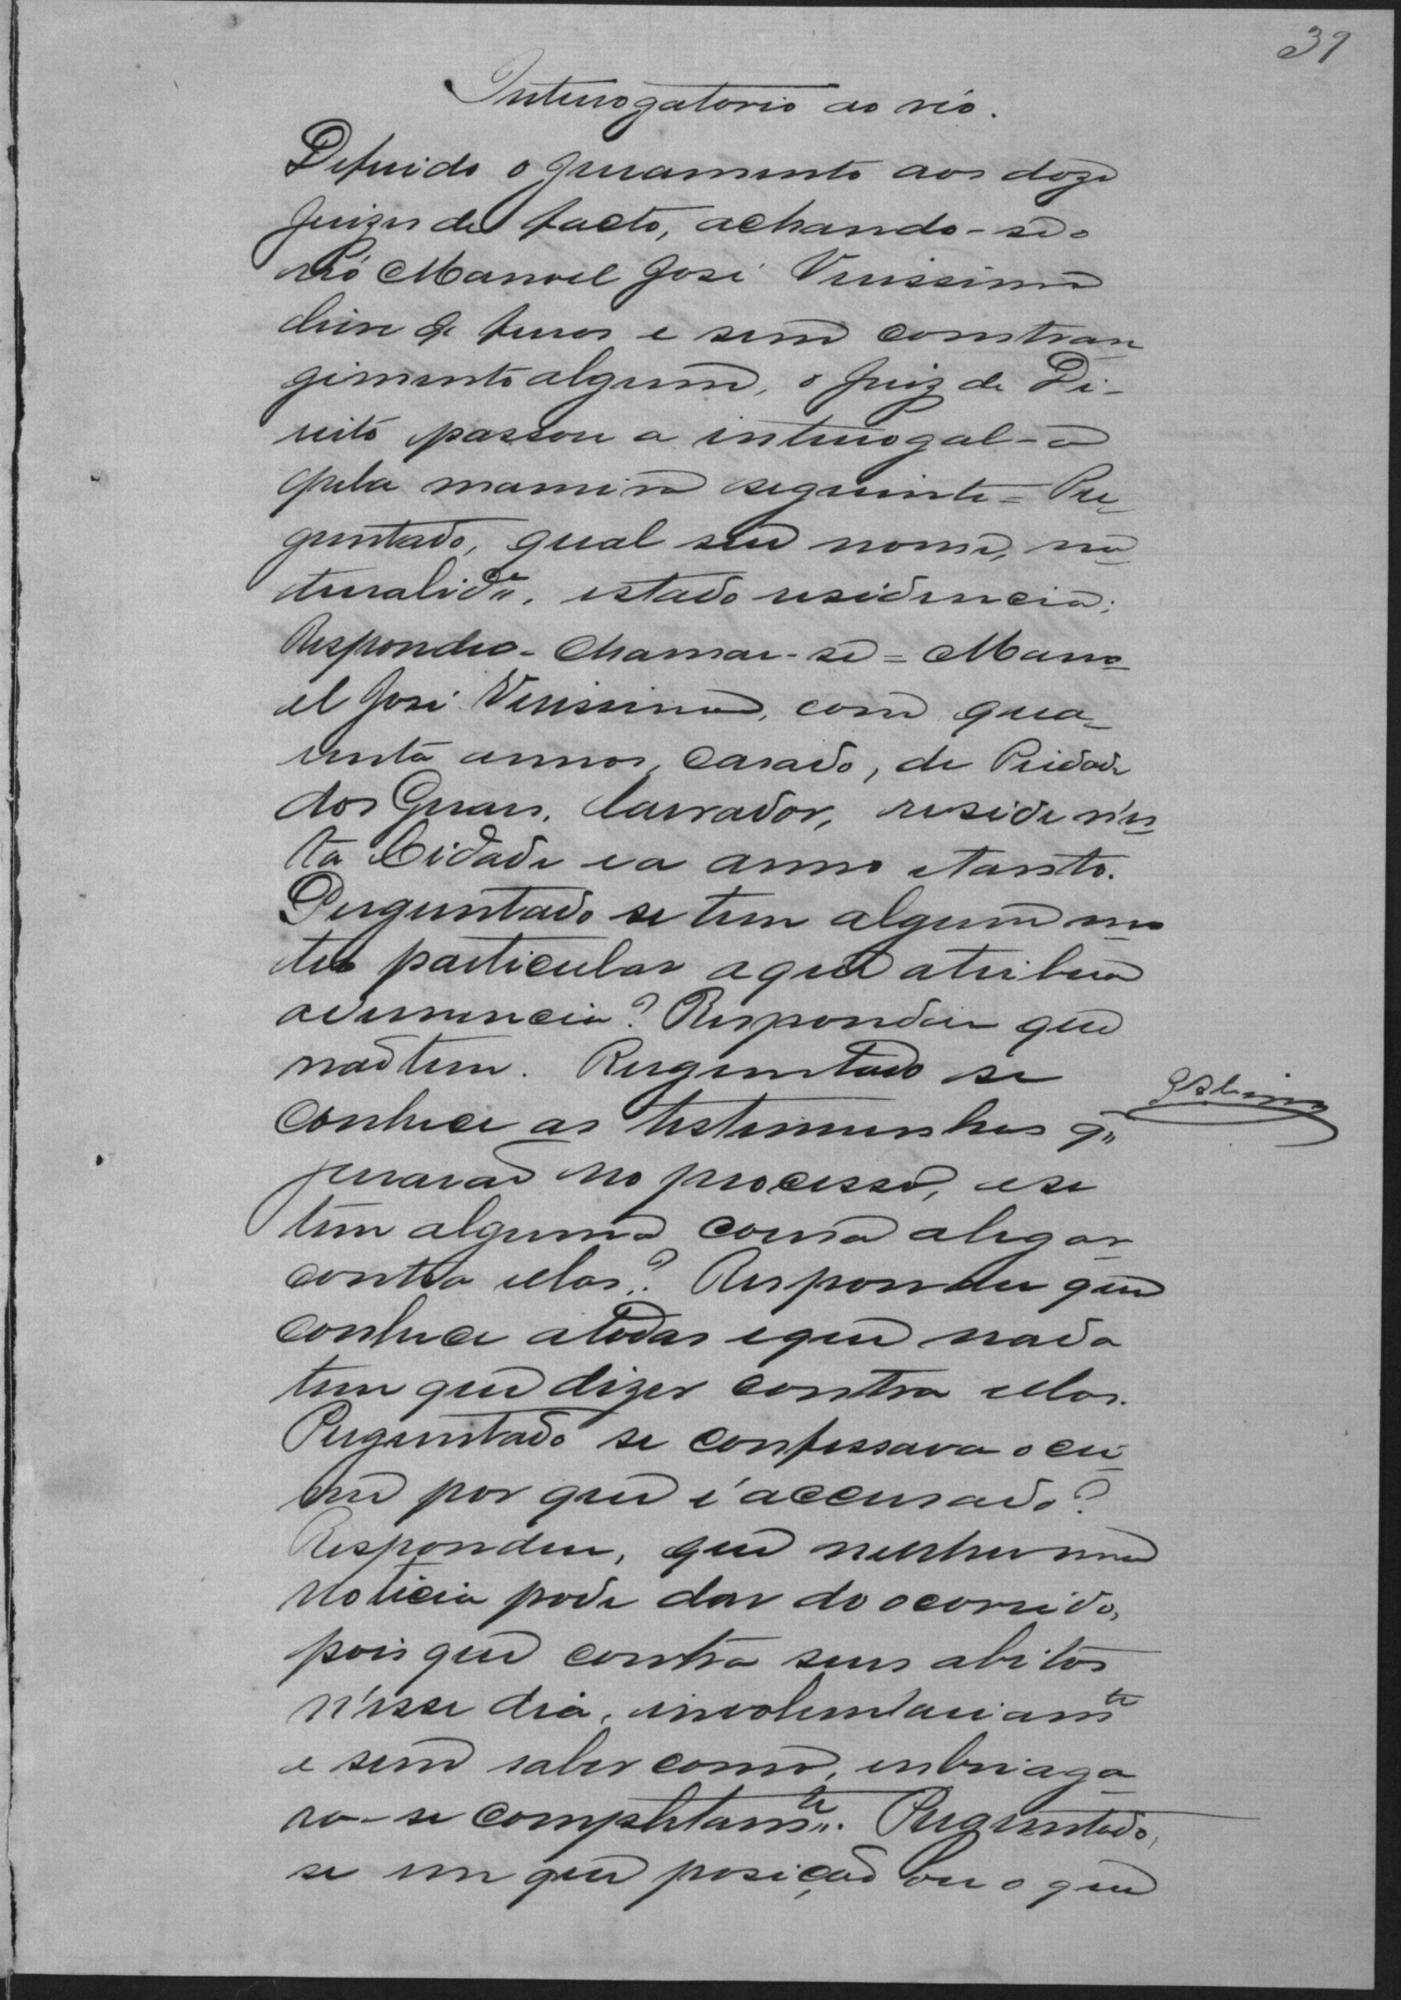 39
Interrogatorio ao réo.
Deferido o juramento aos doze
juizes de facto, achando-se o
réo Manoel José Verissimo
livre de ferros e sem constran
gimento algum, o Juiz de Di-
reito passou a interrogal-o
pela maneira seguinte = Per-
guntado, qual seu nome, na
turalidᵉ, estado residencia;
Respondeo - chamar-se = Mano
el José Verissimo, com qua-
renta annos, casado, de Piedade
dos Geraes, lavrador, reside n'es
ta Cidade ea anno e tanto.
Perguntado se tem algum mo
tivo particular a que atribua
a denuncia? Respondeu que
não tem. Perguntado se
conhece as testemunhas q"
jurarão no processo, e se
tem alguma cousa alegar
contra ellas? Respondeu que
conhece a todas e que nada
tem que dizer contra ellas.
Perguntado se confessava o cri
me por que é accusado?
Respondeu, que nenhuma
noticia pode dar do ocorrido,
pois que contra seus abitos
n'esse dia, involuntariamᵗᵉ
e sem saber como, enbriaga
ra-se completamᵗᵉ. Perguntado,
se em que posição ou o que